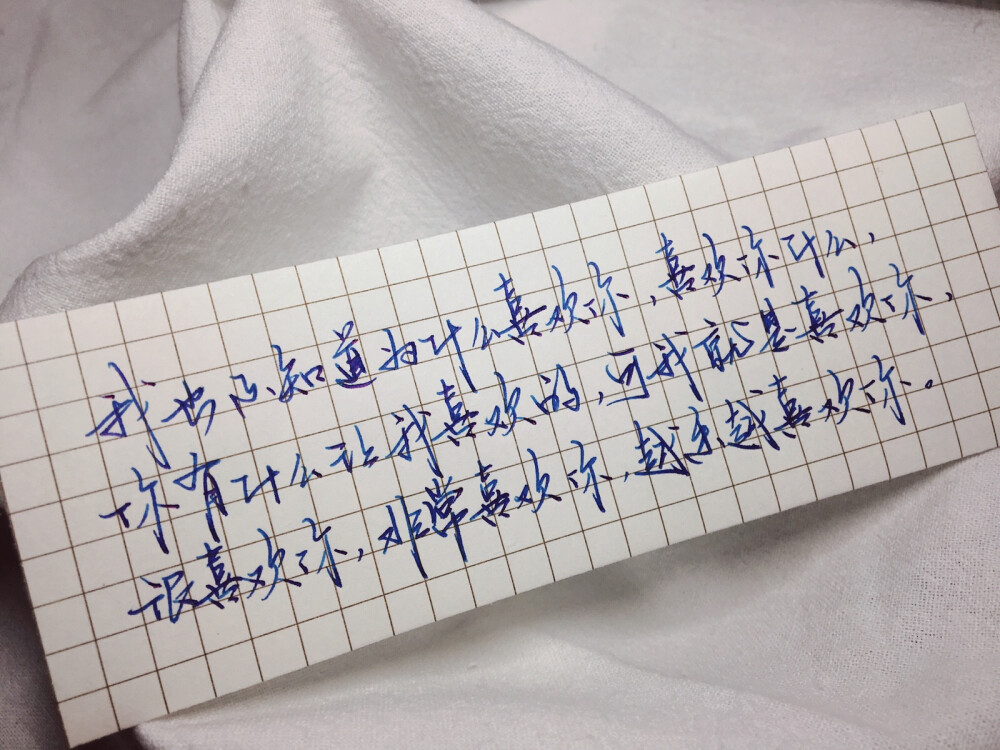 我也不知道为什么喜欢你，喜欢你什么，
你有什么让我喜欢的，可我就是喜欢你，
很喜欢你，非常喜欢你，越来越喜欢你。